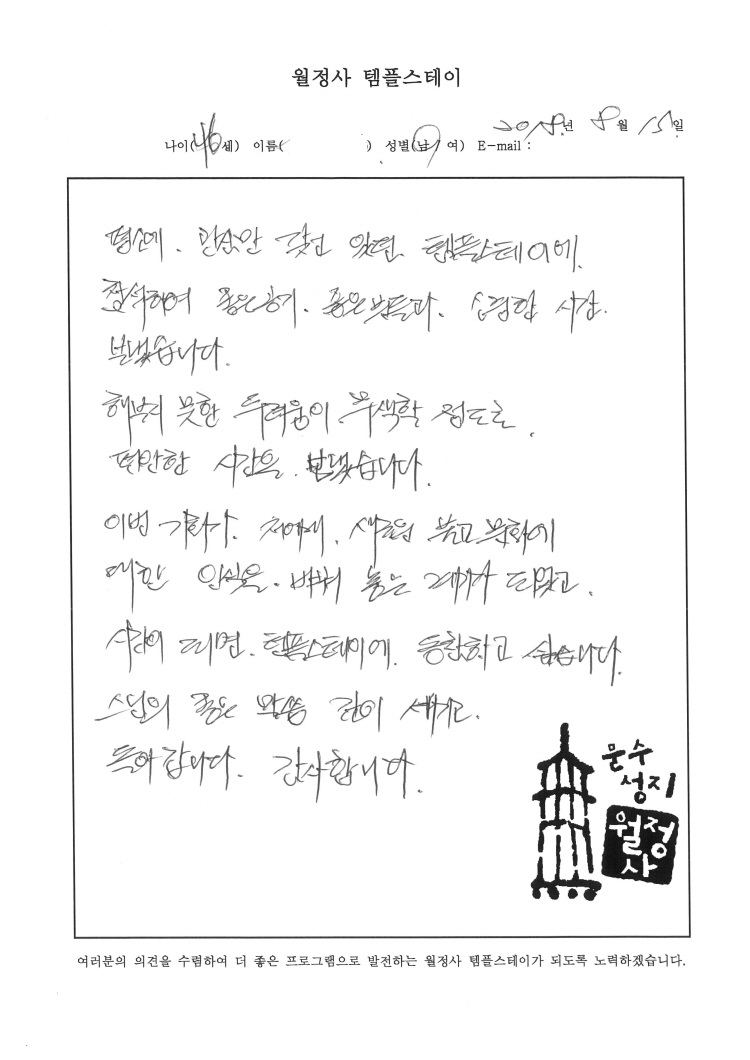 월정사 템플스테이
2018년 8월 15일
나이(46세) 이름( ) 성별(남/여) E-mail :
평소에. 갖고 있던. 템플스테이에.
참석하여 좋은공기. 좋은분들과. 시간.
보냈습니다.
해보지 못한 두려움이. 무색할 정도로.
편안한 시간을. 보냈습니다.
이번 기회가. 저에게. 새로운 불교문화에
대한 인식을. 바꿔 놓는 계기가 되었고.
시간이 되면. 템플스테이에. 동참하고 싶습니다.
스님의 좋은 말씀 깊이 새기고.
돌아갑니다. 감사합니다.
문수
성지
월정
사
여러분의 의견을 수렴하여 더 좋은 프로그램으로 발전하는 월정사 템플스테이가 되도록 노력하겠습니다.